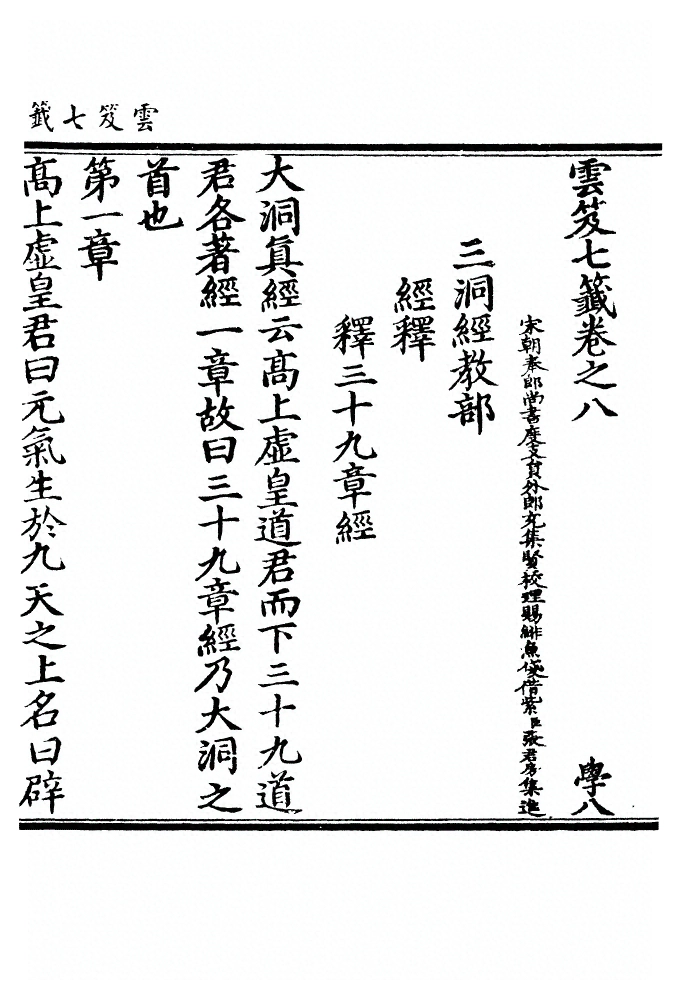 雲笈七籤
雲笈七籤卷之八 學八
宋朝奉郎尚書度支員外郎充集賢校理賜緋魚袋借紫臣張君房集進
三洞經教部
經釋
釋三十九章經
大洞眞經云高上虛皇道君而下三十九道
君各著經一章故曰三十九章經乃大洞之
首也
第一章
高上虛皇君曰元氣生於九天之上名曰辟